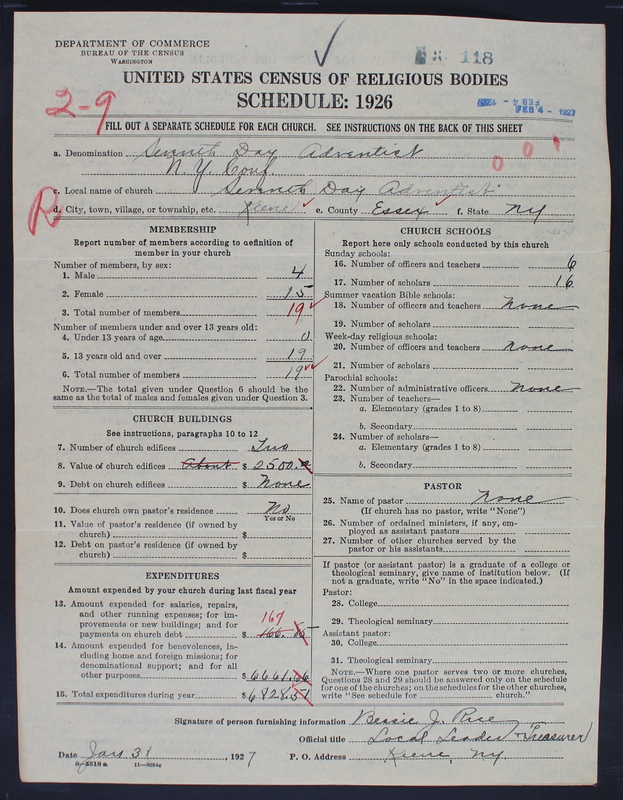 DEPARTMENT OF COMMERCE
BUREAU OF THE CENSUS
WASHINGTON
118
UNITED STATES CENSUS OF RELIGIOUS BODIES
SCHEDULE: 1926
2-9
FEB 4 - 1927
FILL OUT A SEPARATE SCHEDULE FOR EACH CHURCH. SEE INSTRUCTIONS ON THE BACK OF THIS SHEET
a. Denomination Seventh Day Adventist
N. Y. Conf.
0 0 1
c. Local name of church Seventh Day Adventist
R
d. City, town, village, or township, etc. Keene e. County Essex f. State NY
MEMBERSHIP
Report number of members according to definition of member in your church
Number of members, by sex:
1. Male 4
2. Female 15
3. Total number of members 19
Number of members under and over 13 years old:
4. Under 13 years of age 0
5. 13 years old and over 19
6. Total number of members 19
NOTE.—The total given under Question 6 should be the same as the total of males and females given under Question 3.
CHURCH BUILDINGS
See instructions, paragraphs 10 to 12
7. Number of church edifices Two
8. Value of church edifices About $ 2500.
9. Debt on church edifices $ None
10. Does church own pastor's residence No
Yes or No
11. Value of pastor's residence (if owned by church) $
12. Debt on pastor's residence (if owned by church) $
EXPENDITURES
Amount expended by your church during last fiscal year
13. Amount expended for salaries, repairs, and other running expenses; for improvements or new buildings; and for payments on church debt $ 167
14. Amount expended for benevolences, including home and foreign missions; for denominational support; and for all other purposes $ 6661.66
15. Total expenditures during year $ 6828.51
CHURCH SCHOOLS
Report here only schools conducted by this church
Sunday schools:
16. Number of officers and teachers 6
17. Number of scholars 16
Summer vacation Bible schools:
18. Number of officers and teachers None
19. Number of scholars
Week-day religious schools:
20. Number of officers and teachers None
21. Number of scholars
Parochial schools:
22. Number of administrative officers None
23. Number of teachers—
a. Elementary (grades 1 to 8)
b. Secondary
24. Number of scholars—
a. Elementary (grades 1 to 8)
b. Secondary
PASTOR
25. Name of pastor None
(If church has no pastor, write "None")
26. Number of ordained ministers, if any, employed as assistant pastors
27. Number of other churches served by the pastor or his assistants
If pastor (or assistant pastor) is a graduate of a college or theological seminary, give name of institution below. (If not a graduate, write "No" in the space indicated.)
Pastor:
28. College
29. Theological seminary
Assistant pastor:
30. College
31. Theological seminary
NOTE.—Where one pastor serves two or more churches, Questions 28 and 29 should be answered only on the schedule for one of the churches; on the schedules for the other churches, write "See schedule for church."
Signature of person furnishing information Bessie J. Rice
Official title Local Leader & Treasurer
Date Jan 31 1927 P. O. Address Keene, NY.
8-5518 a 11-9554